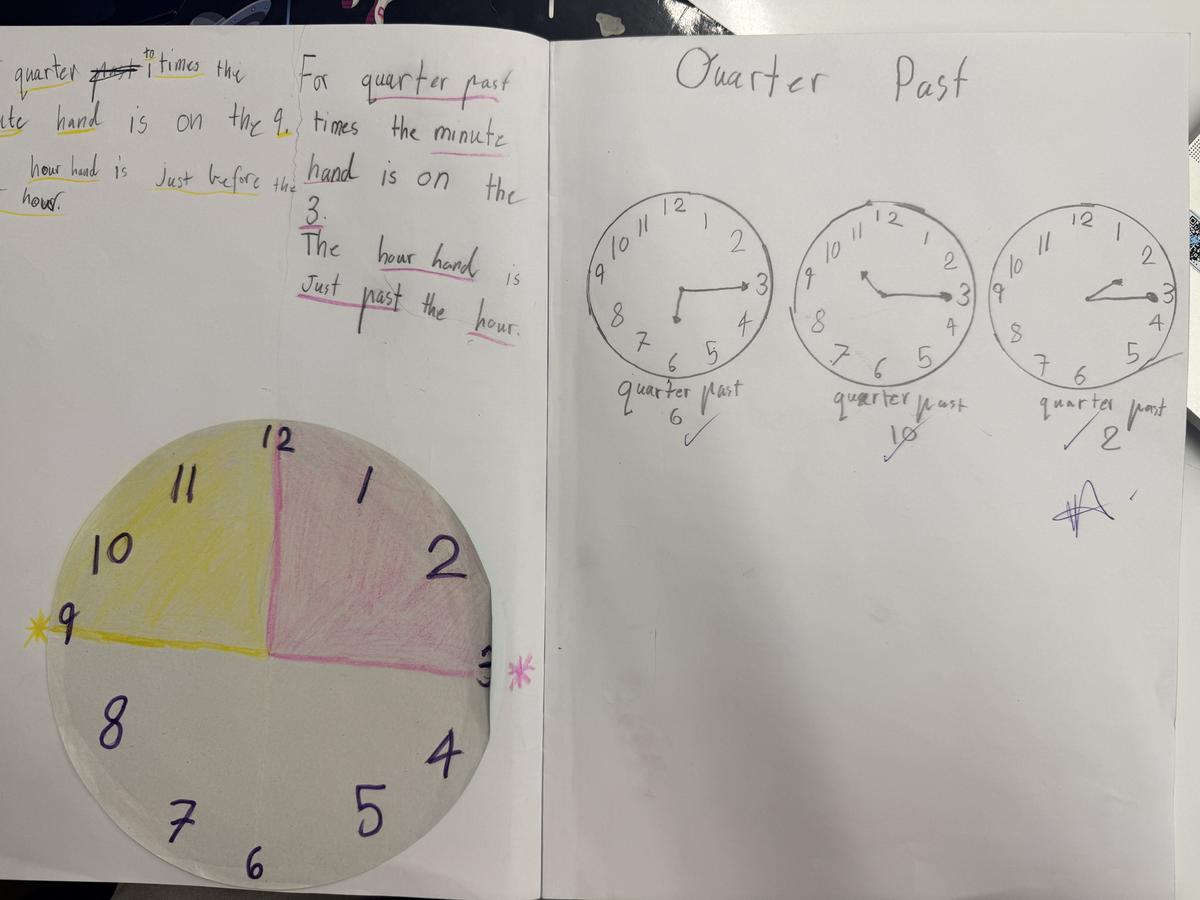 quarter past to times the
hand is on the 9.
hour hand is just before the
hour.
For quarter past
times the minute
hand is on the
3.
The hour hand is
Just past the hour.
12
11
1
10
2
9
3
8
4
7
5
6
Quarter Past
12
11
1
10
2
9
3
8
4
7
5
6
quarter past
6
12
11
1
10
2
9
3
8
4
7
5
6
quarter past
10
12
11
1
10
2
9
3
8
4
7
5
6
quarter past
2